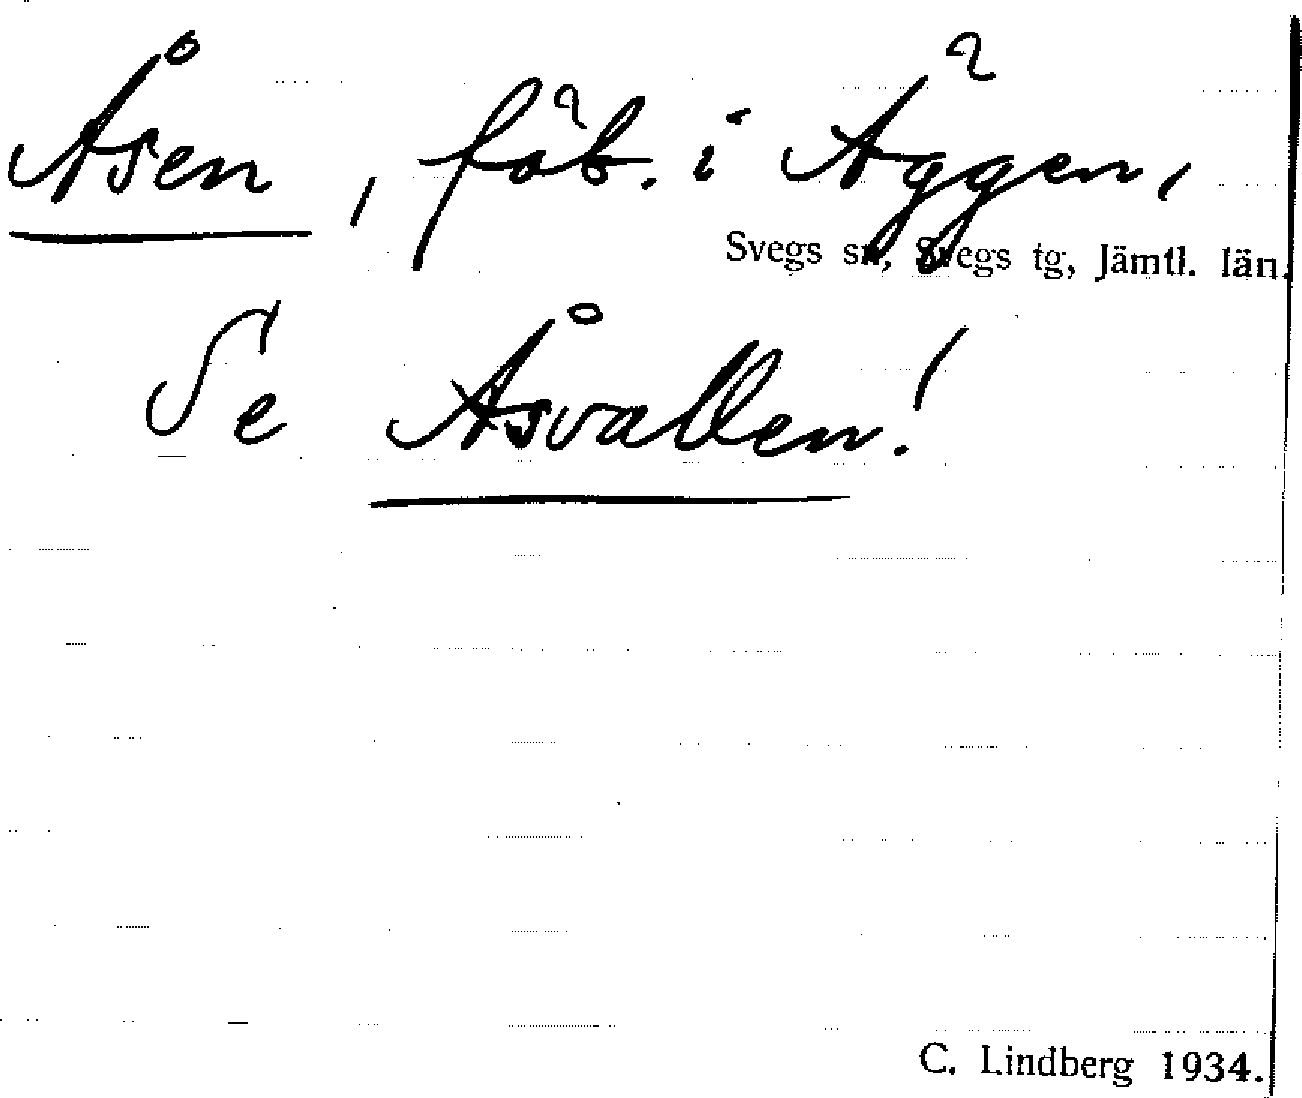 Åsen, fäb. i Äggen,
Svegs sn, Svegs tg, Jämtl. län.
Se Åsvallen!
C. Lindberg 1934.